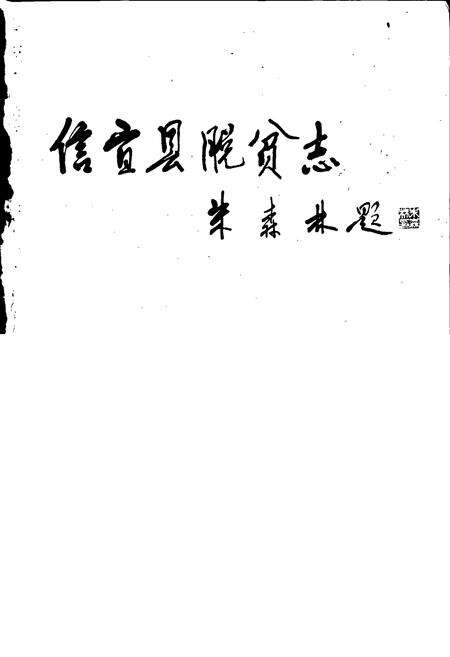 信宜县脱贫志
朱森林题